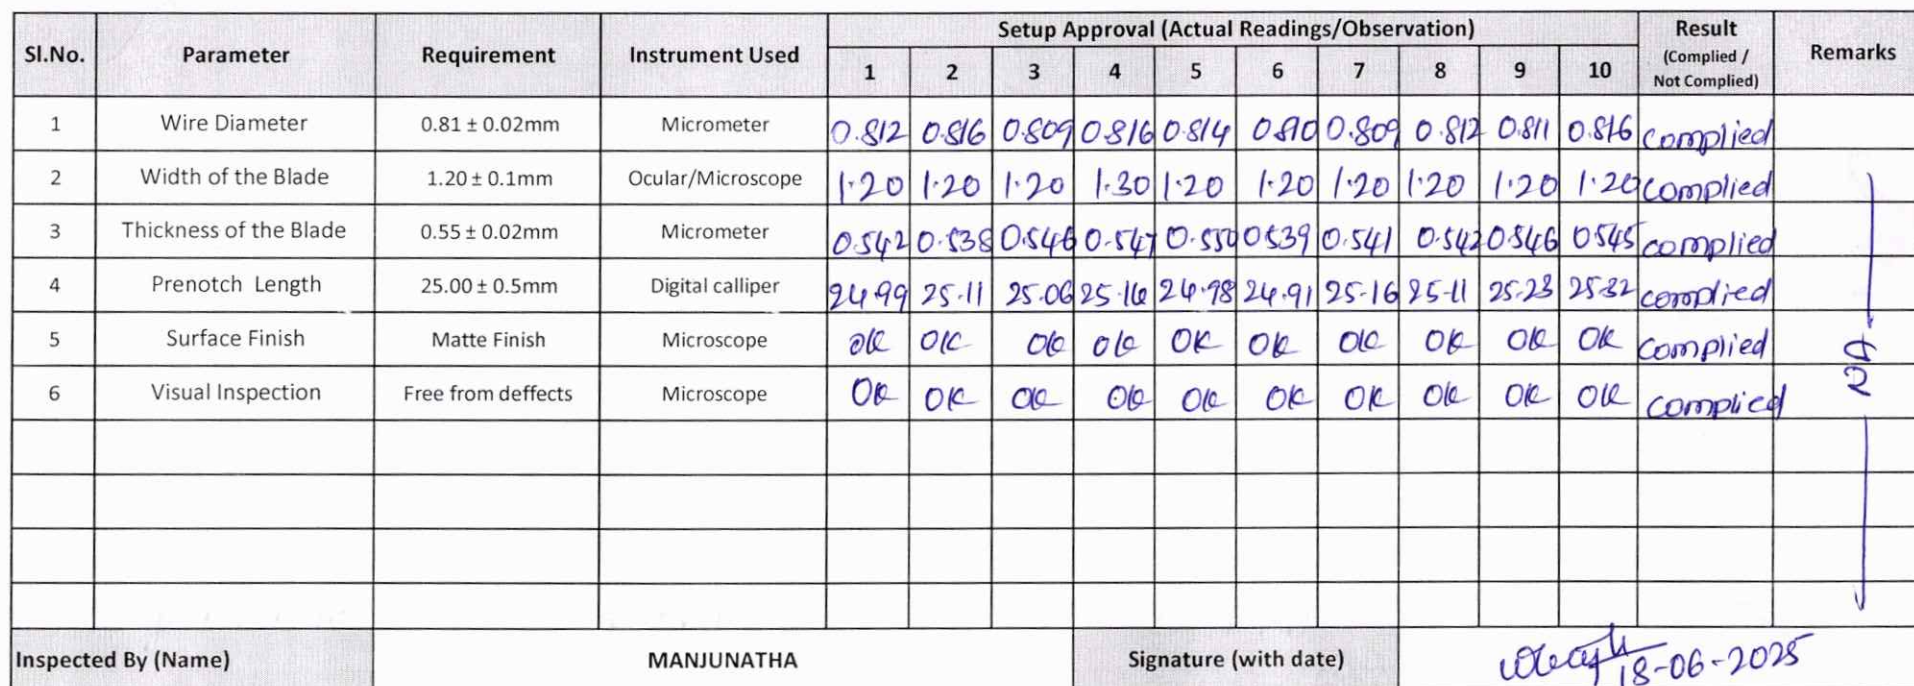 Sl.No. Parameter Requirement Instrument Used Setup Approval (Actual Readings/Observation) Result (Complied / Not Complied) Remarks
1 2 3 4 5 6 7 8 9 10
1 Wire Diameter 0.81 ± 0.02mm Micrometer 0.812 0.816 0.809 0.816 0.814 0.810 0.809 0.812 0.811 0.816 complied
2 Width of the Blade 1.20 ± 0.1mm Ocular/Microscope 1.20 1.20 1.20 1.30 1.20 1.20 1.20 1.20 1.20 1.20 complied
3 Thickness of the Blade 0.55 ± 0.02mm Micrometer 0.542 0.538 0.546 0.547 0.550 0.539 0.541 0.542 0.546 0.545 complied
4 Prenotch Length 25.00 ± 0.5mm Digital calliper 24.99 25.11 25.06 25.16 24.98 24.91 25.16 25.11 25.23 25.32 complied
5 Surface Finish Matte Finish Microscope OK OK OK OK OK OK OK OK OK OK complied
6 Visual Inspection Free from deffects Microscope OK OK OK OK OK OK OK OK OK OK complied
NA
Inspected By (Name) MANJUNATHA Signature (with date) 18-06-2025